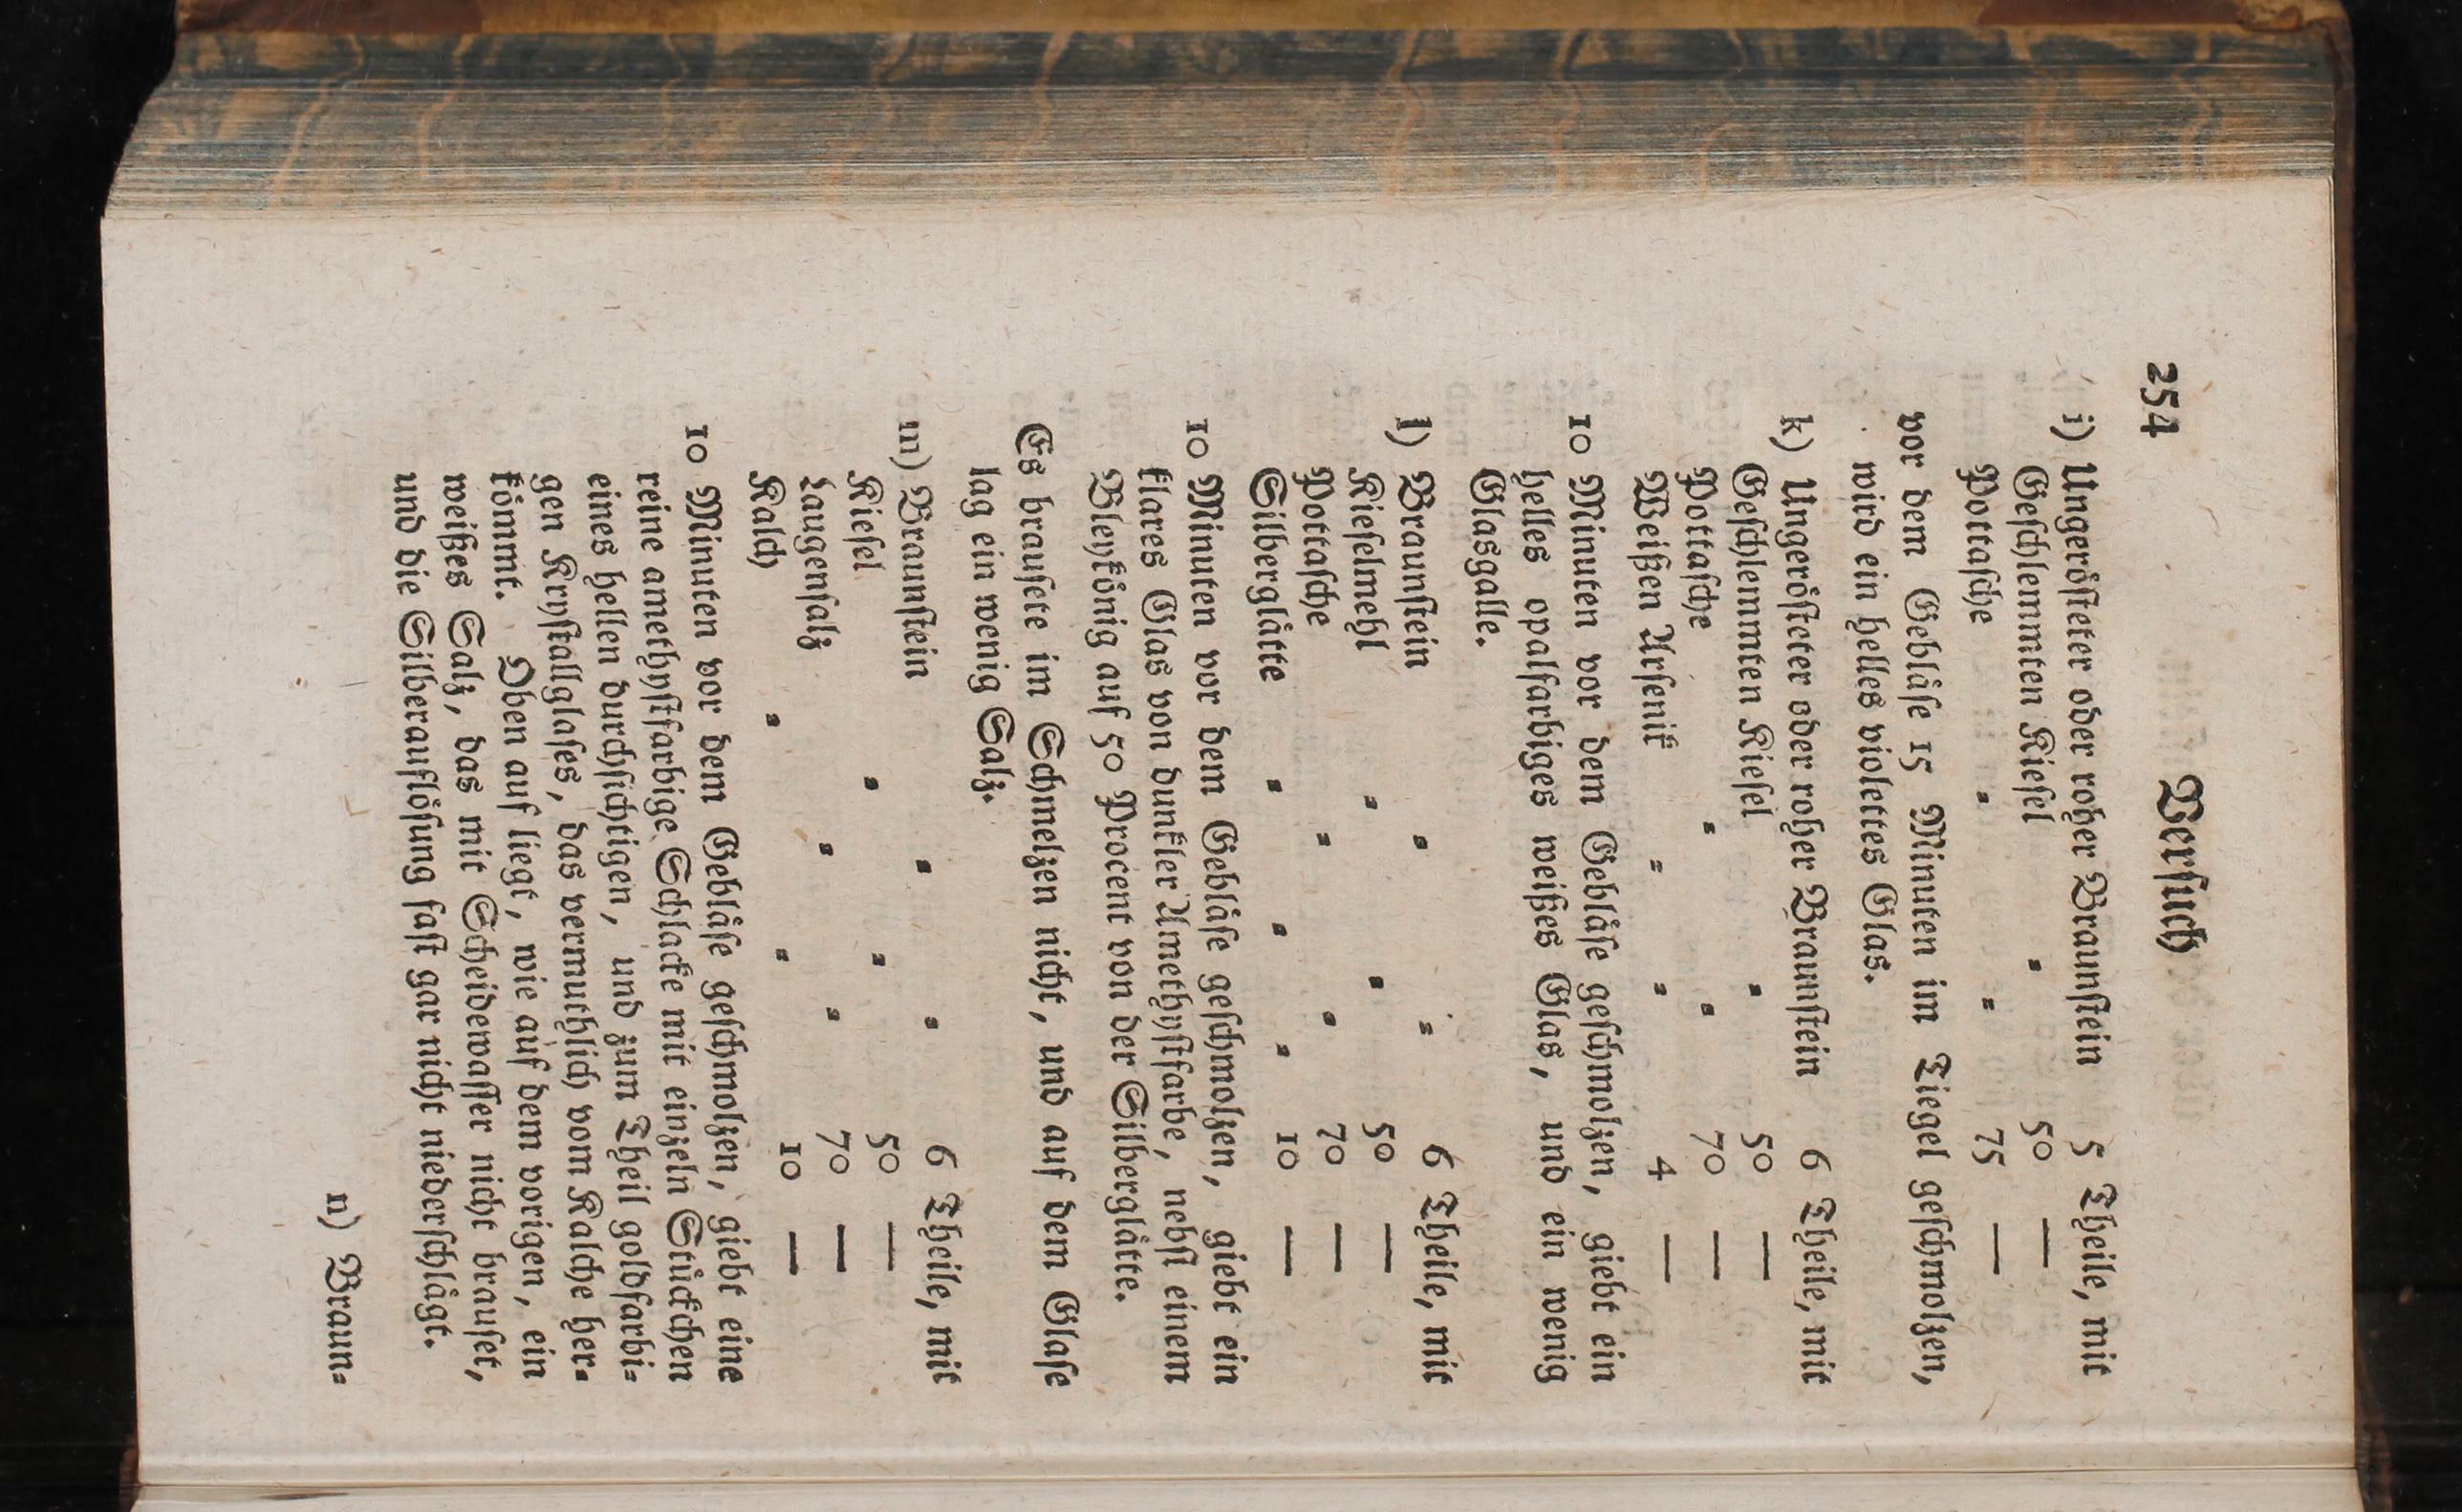 254 Versuch
i) Ungerösteter oder roher Braunstein 5 Theile, mit
Geschlemmten Kiesel = 50 —
Pottasche = = 75 —
vor dem Gebläse 15 Minuten im Tiegel geschmolzen,
wird ein helles violettes Glas.
k) Ungerösteter oder roher Braunstein 6 Theile, mit
Geschlemmten Kiesel = 50 —
Pottasche = = 70 —
Weißen Arsenik = = 4 —
10 Minuten vor dem Gebläse geschmolzen, giebt ein
helles opalfarbiges weißes Glas, und ein wenig
Glasgalle.
l) Braunstein = = 6 Theile, mit
Kieselmehl = = 50 —
Pottasche = = 70 —
Silberglätte = = = 10 —
10 Minuten vor dem Gebläse geschmolzen, giebt ein
klares Glas von dunkler Amethystfarbe, nebst einem
Bleykönig auf 50 Procent von der Silberglätte.
Es brausete im Schmelzen nicht, und auf dem Glase
lag ein wenig Salz.
m) Braunstein = = 6 Theile, mit
Kiesel = = 50 —
Laugensalz = = 70 —
Kalch = = 10 —
10 Minuten vor dem Gebläse geschmolzen, giebt eine
reine amethystfarbige Schlacke mit einzeln Stückchen
eines hellen durchsichtigen, und zum Theil goldfarbi=
gen Krystallglases, das vermuthlich vom Kalche her=
kömmt. Oben auf liegt, wie auf dem vorigen, ein
weißes Salz, das mit Scheidewasser nicht brauset,
und die Silberauflösung fast gar nicht niederschlägt.
n) Braun=